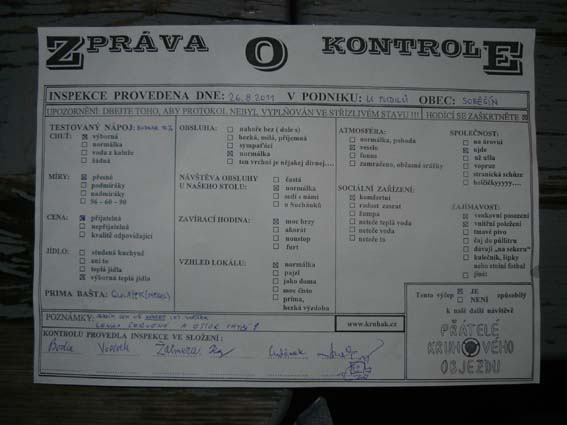 ZPRÁVA O KONTROLE
INSPEKCE PROVEDENA DNE: 26.8.2011 V PODNIKU: U OBEC: SOBĚŠÍN
UPOZORNĚNÍ: DBEJTE TOHO, ABY PROTOKOL NEBYL VYPLŇOVÁN VE STŘÍZLIVÉM STAVU !!! HODÍCÍ SE ZAŠKRTNĚTE
TESTOVANÝ NÁPOJ:
CHUŤ:
výborná
normálka
voda z kaluže
žádná
MÍRY:
přesné
podmíráky
nadmíráky
96 - 60 - 90
CENA:
přijatelná
nepřijatelná
kvalitě odpovídající
JÍDLO:
studená kuchyně
ani to
teplá jídla
výborná teplá jídla
PRIMA BAŠTA:
OBSLUHA:
nahoře bez ( dole s)
hezká, milá, příjemná
sympaťáci
normálka
ten vrchní je nějakej divnej....
NÁVŠTĚVA OBSLUHY U NAŠEHO STOLU:
častá
normálka
seděl s námi
u Nechánků
ZAVÍRACÍ HODINA:
moc brzy
akorát
nonstop
furt
VZHLED LOKÁLU:
normálka
pajzl
jako doma
moc čisto
prima,
hezká výzdoba
ATMOSFÉRA:
normálka, pohoda
veselo
funus
zamračeno, občasné srážky
SOCIÁLNÍ ZAŘÍZENÍ:
komfortní
radost zasrat
žumpa
neteče teplá voda
neteče voda
neteče to
SPOLEČNOST:
na úrovni
ujde
už ušla
vopruz
stranická schůze
bolčičkyyyyy....
ZAJÍMAVOST:
venkovní posezení
vnitřní poležení
tmavé pivo
čaj do půllitru
dávají „na sekeru“
kulečník, šipky
nebo stolní fotbal
jiná:
POZNÁMKY:
www.kruhak.cz
Tento výčep JE způsobilý
NENÍ
k naší další návštěvě
KONTROLU PROVEDLA INSPEKCE VE SLOŽENÍ:
PŘÁTELÉ
KRUHOVÉHO
OBJEZDU